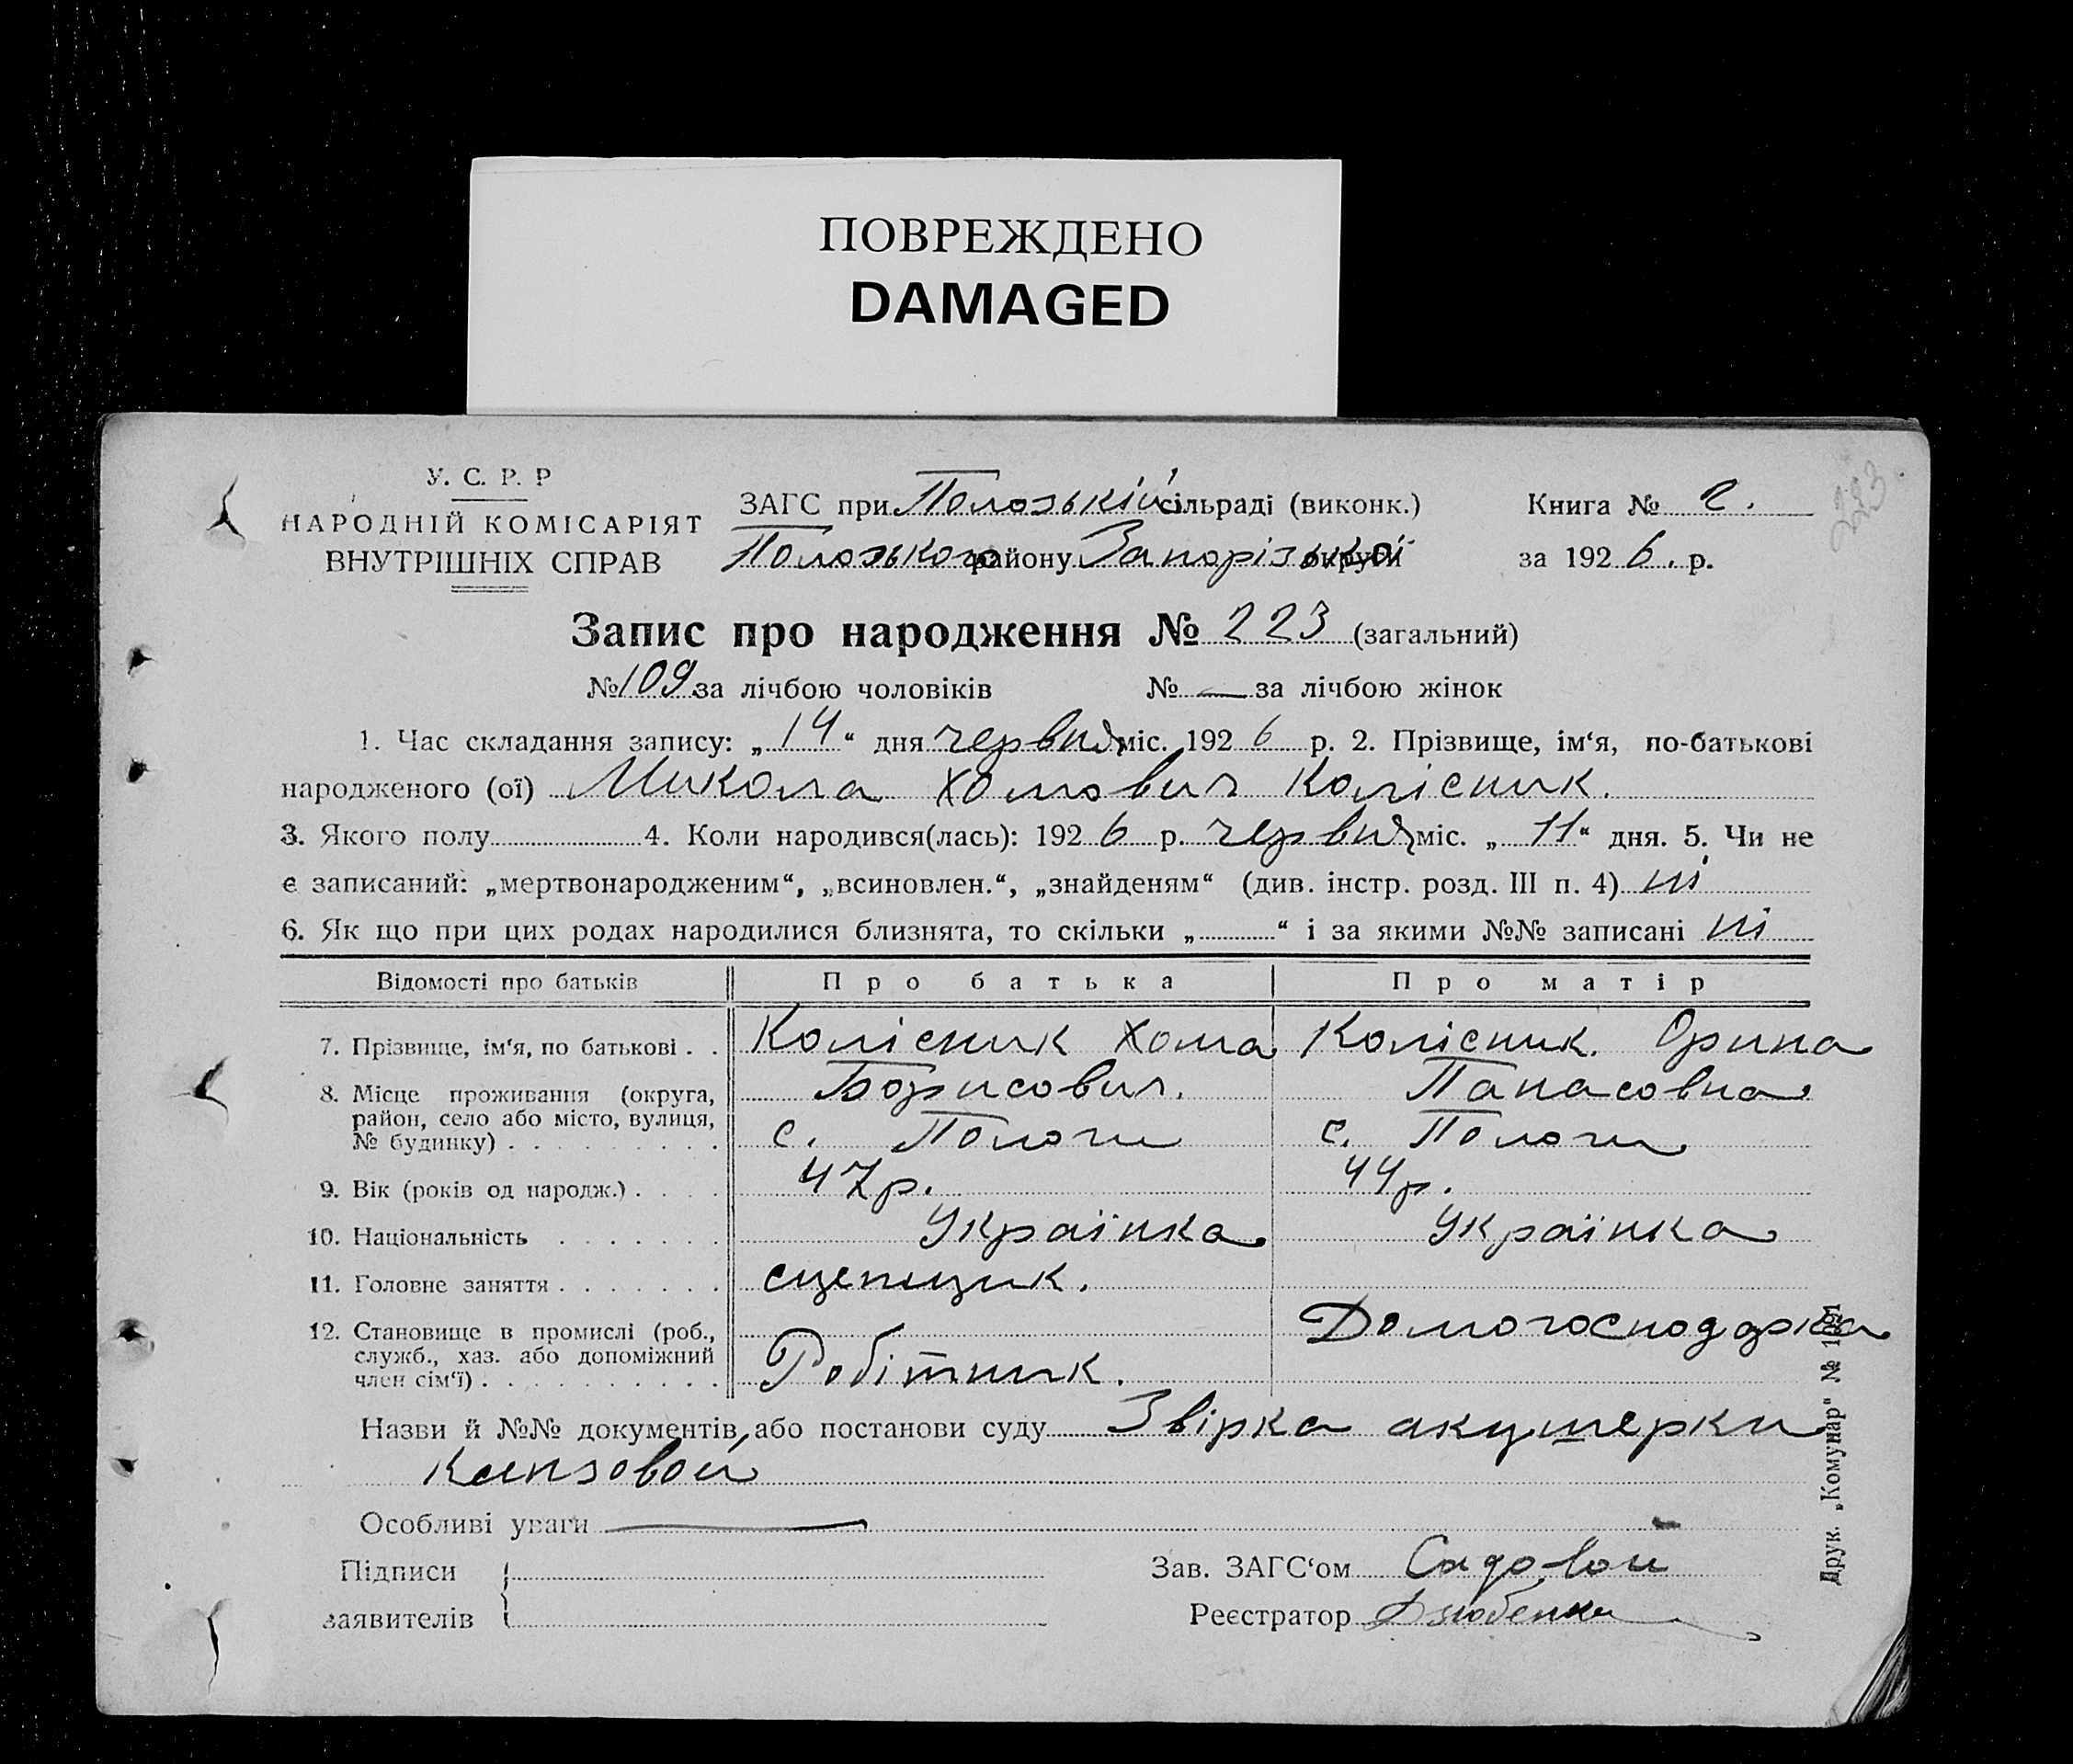 ПОВРЕЖДЕНО
DAMAGED
223
У. С. Р. Р
НАРОДНІЙ КОМІСАРІЯТ
ВНУТРІШНІХ СПРАВ
ЗАГС при Пологькій сільраді (виконк.)
Пологького району Запорізької округи
Книга № 2.
за 1926. р.
Запис про народження № 223 (загальний)
№ 109 за лічбою чоловіків № — за лічбою жінок
1. Час складання запису: „14“ дня червня міс. 1926 р. 2. Прізвище, ім‘я, по-батькові
народженого (ої) Микола Хомович Колісник.
3. Якого полу 4. Коли народився(лась): 1926 р. червня міс. „11“ дня. 5. Чи не
є записаний: „мертвонародженим“, „всиновлен.“, „знайденям“ (див. інстр. розд. III п. 4) ні
6. Як що при цих родах народилися близнята, то скільки „ “ і за якими №№ записані ні
Відомості про батьків Про батька Про матір
7. Прізвище, ім‘я, по батькові . . Колісник Хома Колісник. Орина
Борисович. Панасовна
8. Місце проживання (округа,
район, село або місто, вулиця,
№ будинку) с. Пологи с. Пологи
9. Вік (років од народж.) 47р. 44р.
10. Національність Українка Українка
11. Головне заняття сцепщик.
12. Становище в промислі (роб.,
служб., хаз. або допоміжний
член сім‘ї) Робітник. Домогосподарка
Назви й №№ документів або постанови суду Звірка акушерки
Особливі уваги —
Підписи
заявителів
Зав. ЗАГС‘ом Садовой
Реєстратор Дзюбенко
Друк. „Комунар" № 1091